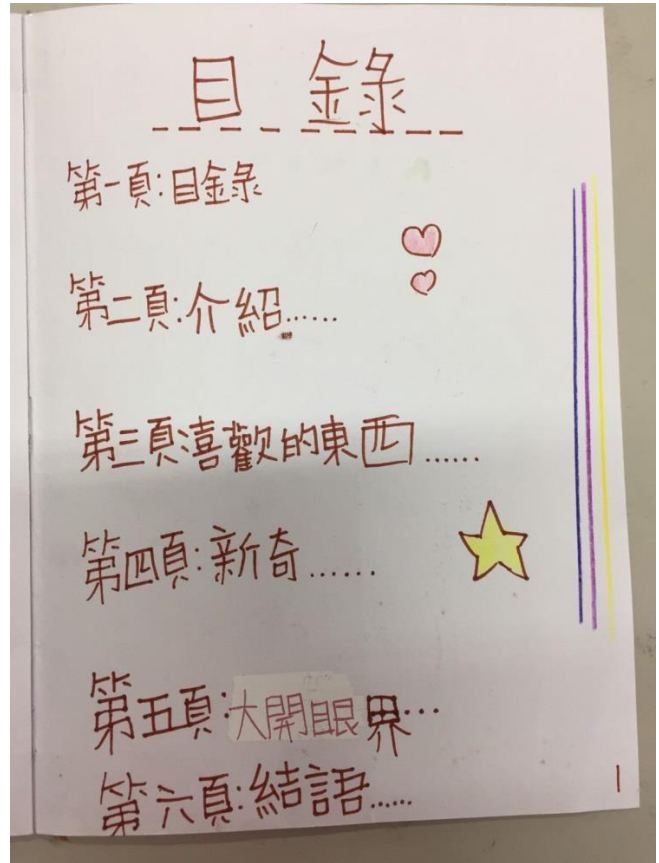 目錄
第一頁:目錄
第二頁:介紹......
第三頁:喜歡的東西......
第四頁:新奇......
第五頁:大開眼界...
第六頁:結語.....
1